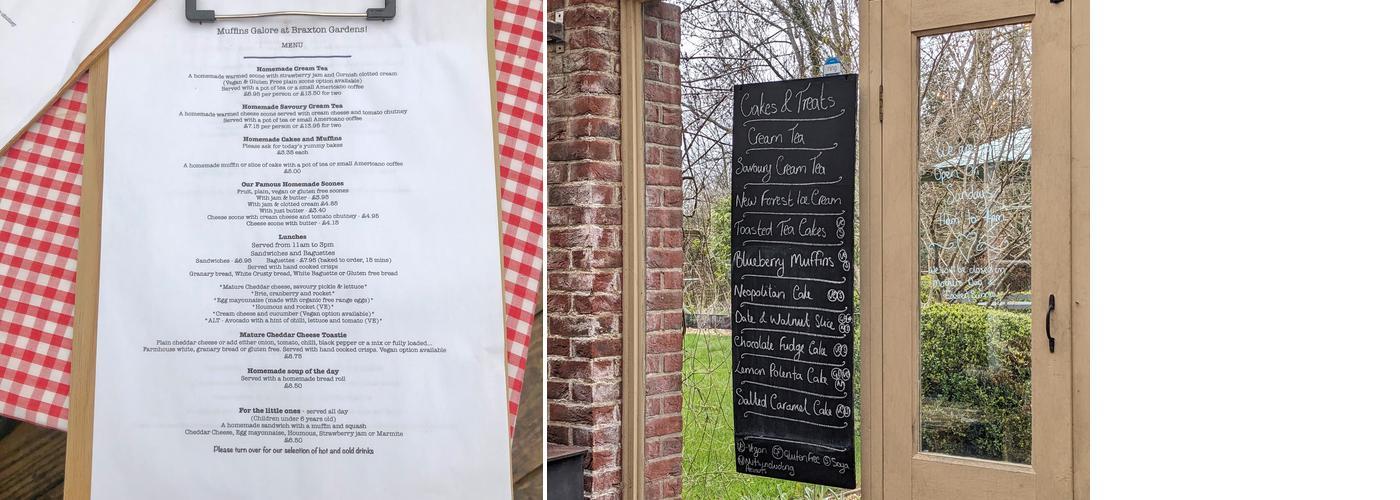 Muffins Galore at Braxton Gardens!
MENU
Homemade Cream Tea
A homemade warmed scone with strawberry jam and Cornish clotted cream
(Vegan & Gluten Free plain scone option available)
Served with a pot of tea or a small Americano coffee
£6.95 per person or £13.50 for two
Homemade Savoury Cream Tea
A homemade warmed cheese scone served with cream cheese and tomato chutney
Served with a pot of tea or small Americano coffee
£7.15 per person or £13.95 for two
Homemade Cakes and Muffins
Please ask for today's yummy bakes
£3.35 each
A homemade muffin or slice of cake with a pot of tea or small Americano coffee
£5.00
Our Famous Homemade Scones
Fruit, plain, vegan or gluten free scones
With jam & butter - £3.95
With jam & clotted cream £4.55
With just butter - £3.40
Cheese scone with cream cheese and tomato chutney - £4.95
Cheese scone with butter - £4.15
Lunches
Served from 11am to 3pm
Sandwiches and Baguettes
Sandwiches - £6.95 Baguettes - £7.95 (baked to order, 15 mins)
Served with hand cooked crisps
Granary bread, White Crusty bread, White Baguette or Gluten free bread
*Mature Cheddar cheese, savoury pickle & lettuce*
*Brie, cranberry and rocket*
*Egg mayonnaise (made with organic free range eggs)*
*Houmous and rocket (VE)*
*Cream cheese and cucumber (Vegan option available)*
*ALT - Avocado with a hint of chilli, lettuce and tomato (VE)*
Mature Cheddar Cheese Toastie
Plain cheddar cheese or add either onion, tomato, chilli, black pepper or a mix or fully loaded...
Farmhouse white, granary bread or gluten free. Served with hand cooked crisps. Vegan option available
£8.75
Homemade soup of the day
Served with a homemade bread roll
£6.50
For the little ones - served all day
(Children under 6 years old)
A homemade sandwich with a muffin and squash
Cheddar Cheese, Egg mayonnaise, Houmous, Strawberry jam or Marmite
£6.50
Please turn over for our selection of hot and cold drinks
Cakes & Treats
Cream Tea
Savoury Cream Tea
New Forest Ice Cream
Toasted Tea Cakes
Blueberry Muffins
Neopolitan Cake
Date & Walnut Slice
Chocolate Fudge Cake
Lemon Polenta Cake
Salted Caramel Cake
Vegan Gluten Free Soya
Nuts including
Peanuts
ring
We are
Open on